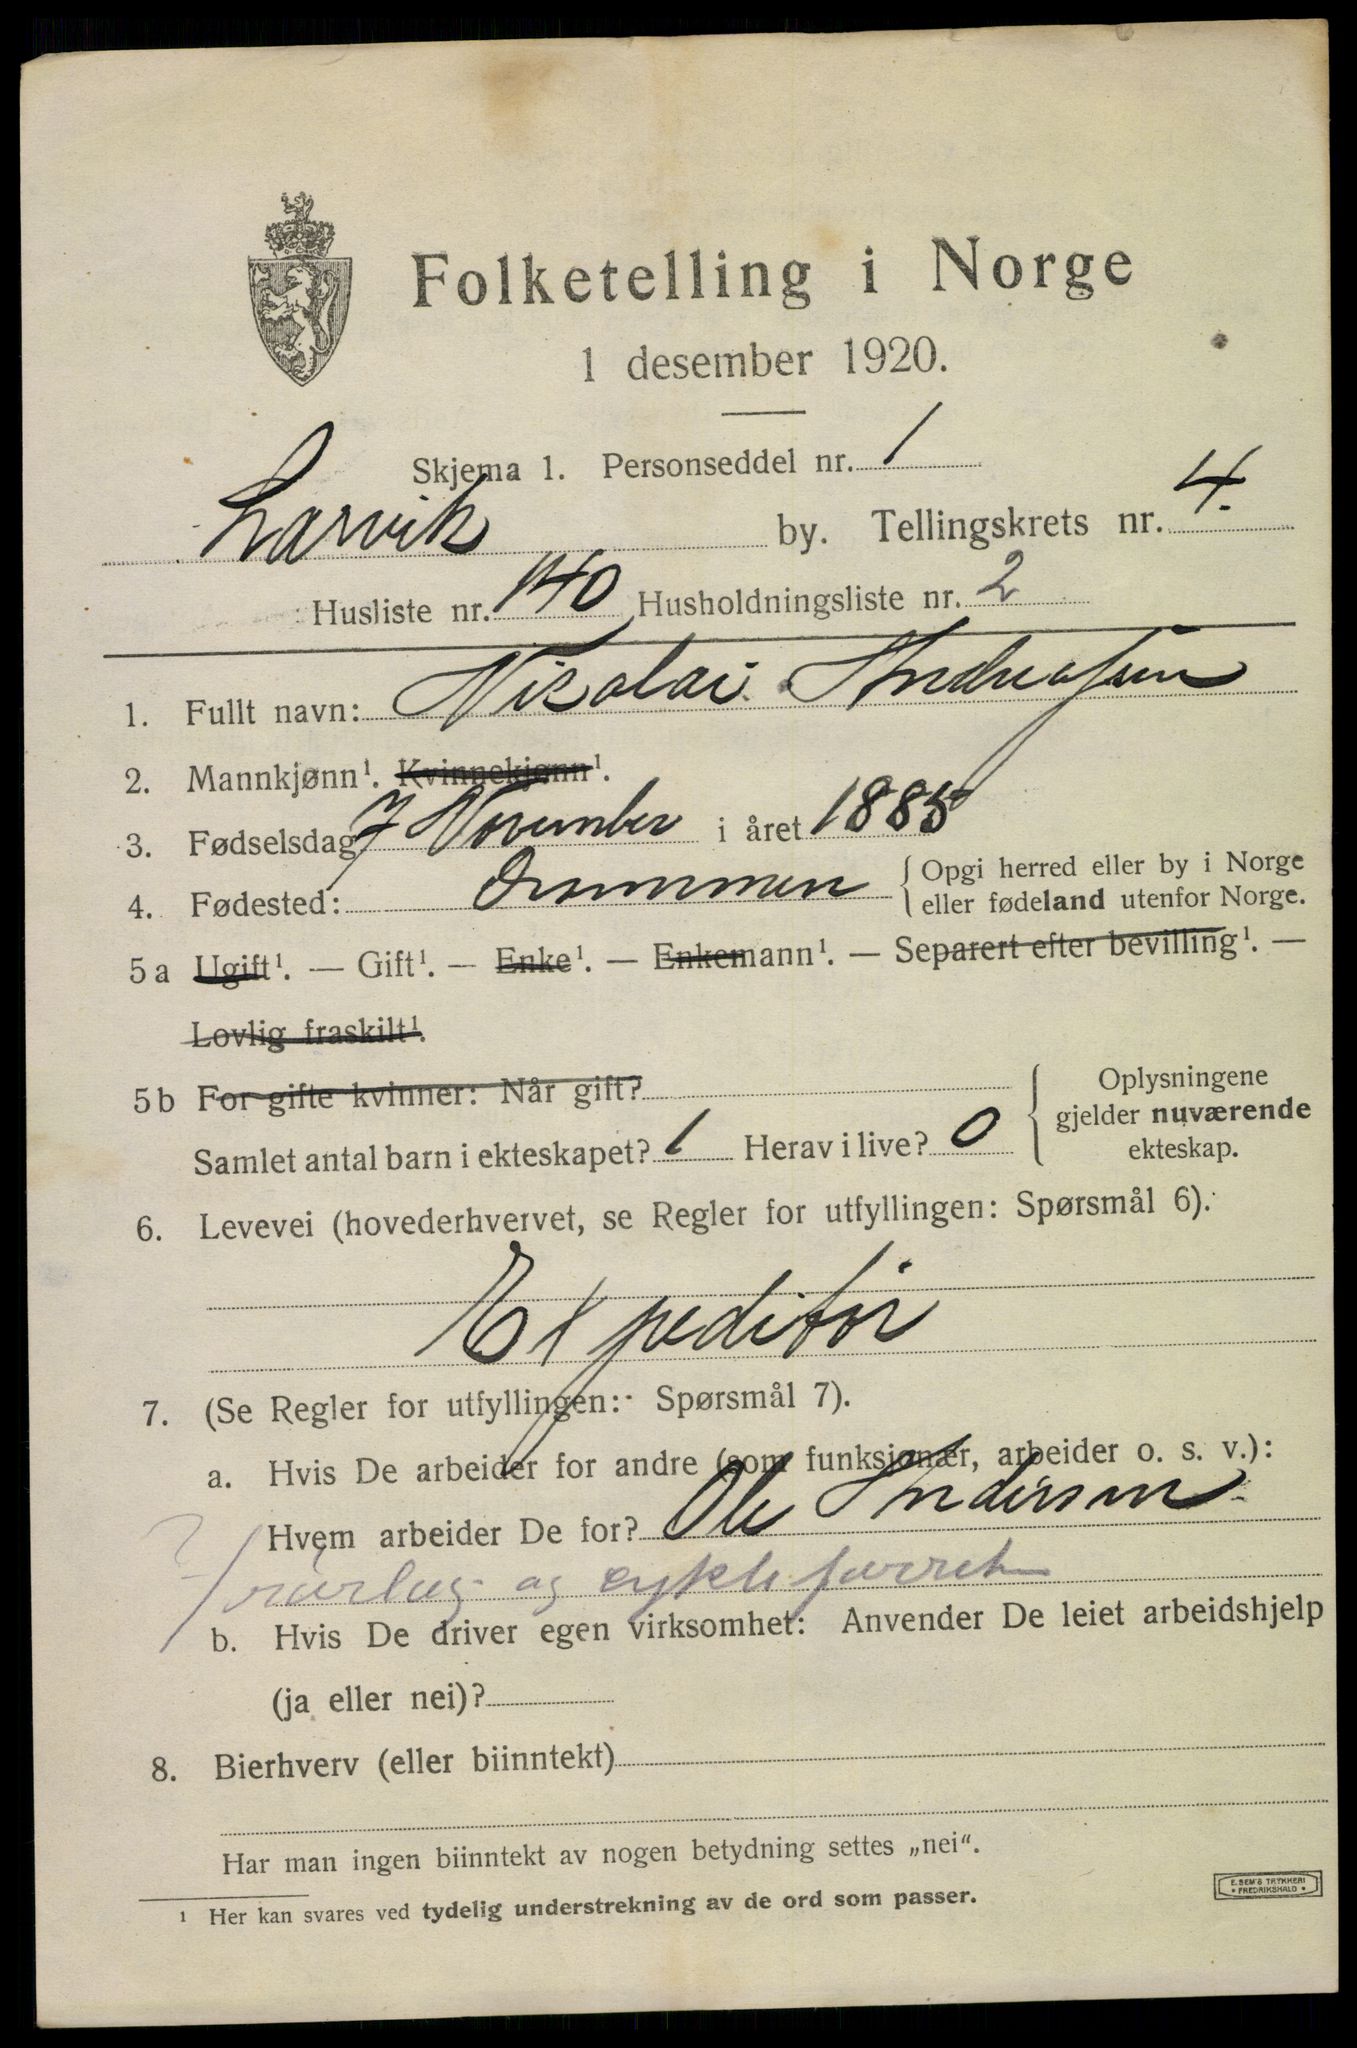 Folketelling i Norge
1 desember 1920.
Skjema 1. Personseddel nr. 1
Larvik by. Tellingskrets nr. 4.
Husliste nr. 140 Husholdningsliste nr. 2
1. Fullt navn: Nikolai Andreassen
2. Mannkjønn¹. Kvinnekjønn¹.
3. Fødselsdag 7 November i året 1885
4. Fødested: Drammen { Opgi herred eller by i Norge
eller fødeland utenfor Norge.
5 a Ugift¹. — Gift¹. — Enke¹. — Enkemann¹. — Separert efter bevilling¹. —
Lovlig fraskilt¹.
5 b For gifte kvinner: Når gift?
Samlet antal barn i ekteskapet? 1 Herav i live? 0 { Oplysningene
gjelder nuværende
ekteskap.
6. Levevei (hovederhvervet, se Regler for utfyllingen: Spørsmål 6).
Expeditør
7. (Se Regler for utfyllingen: Spørsmål 7).
a. Hvis De arbeider for andre (som funksjonær, arbeider o. s. v.):
Hvem arbeider De for? Ole Andersen
og cykleforret
b. Hvis De driver egen virksomhet: Anvender De leiet arbeidshjelp
(ja eller nei)?
8. Bierhverv (eller biinntekt)
Har man ingen biinntekt av nogen betydning settes „nei“.
¹ Her kan svares ved tydelig understrekning av de ord som passer.
E. SEM'S TRYKKERI
• FREDRIKSHALD •